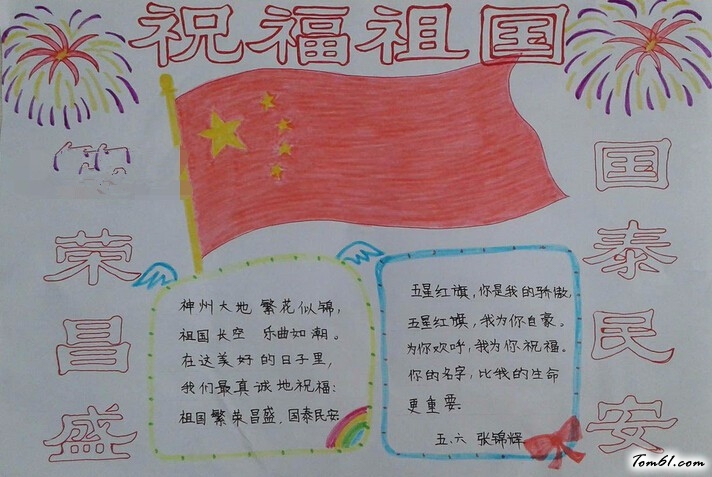 祝福祖国
荣昌盛
国泰民安
神州大地 繁花似锦，
祖国长空 乐曲如潮。
在这美好的日子里，
我们最真诚地祝福：
祖国繁荣昌盛，国泰民安
五星红旗，你是我的骄傲，
五星红旗，我为你自豪。
为你欢呼，我为你祝福。
你的名字，比我的生命
更重要
五.六 张锦辉
Tom61.com